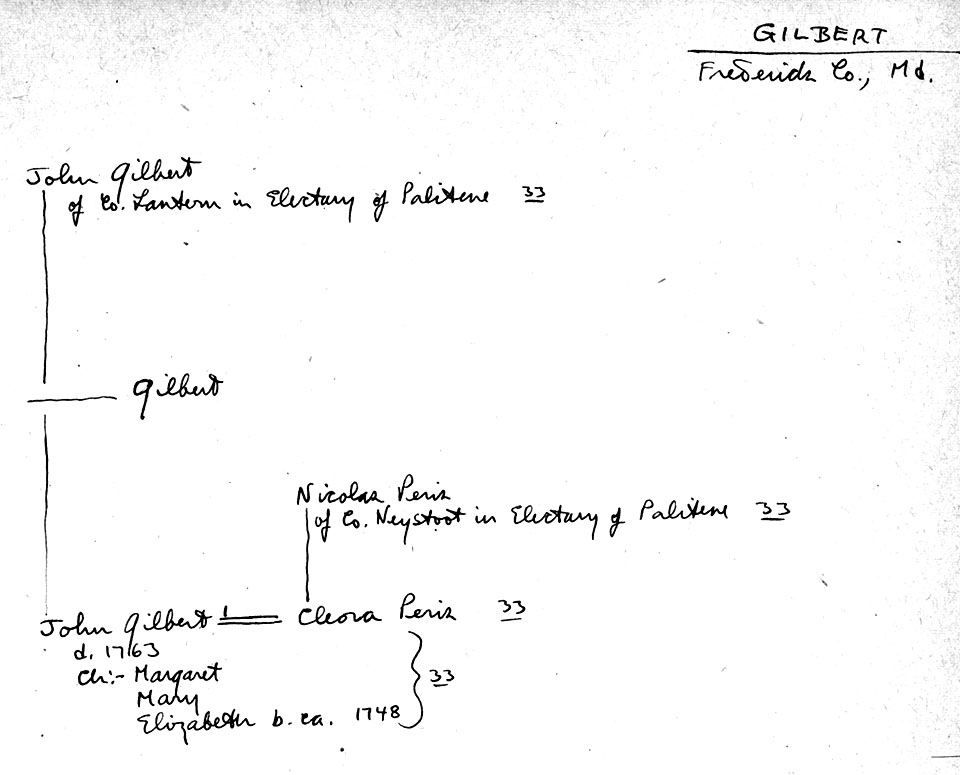 GILBERT
Frederick Co., Md.
John Gilbert
of Co. Lantern in Electary of Palitene 33
Gilbert
Nicolas Peris
of Co. Neystoot in Electary of Palitene 33
John Gilbert 1 Cleora Peris 33
d. 1763
Ch:- Margaret
Mary
Elizabeth b. ca. 1748
33